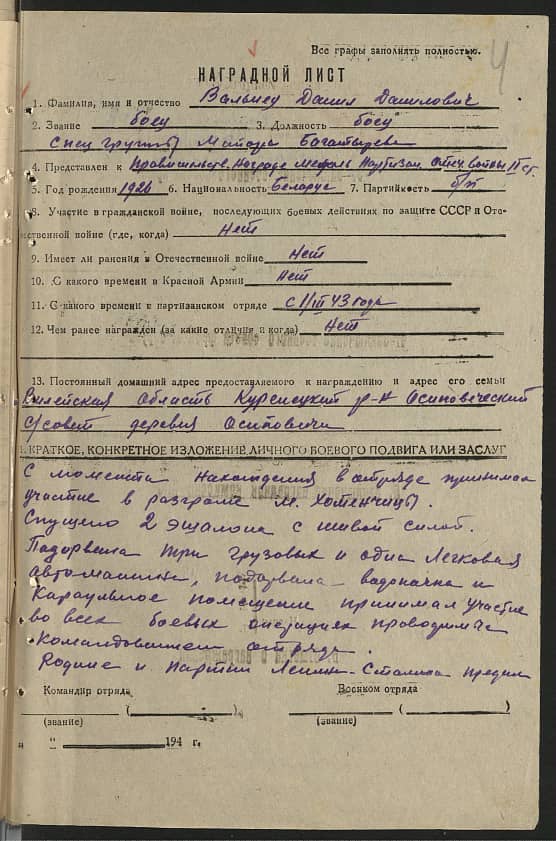 Все графы заполнять полностью.
4
НАГРАДНОЙ ЛИСТ
1. Фамилия, имя и отчество Данил Данилович
2. Звание боец 3. Должность боец
спец группы Майора Богатырева
4. Представлен к Правительств. Награде медаль Партизан Отеч. войны II ст.
5. Год рождения 1926 6. Национальность Беларус 7. Партийность б/п
8. Участие в гражданской войне, последующих боевых действиях по защите СССР и Оте-
чественной войне (где, когда) Нет
9. Имеет ли ранения в Отечественной войне Нет
10. С какого времени в Красной Армии Нет
11. С какого времени в партизанском отряде с 1/III 43 года
12. Чем ранее награжден (за какие отличия и когда) Нет
13. Постоянный домашний адрес предоставляемого к награждению и адрес его семьи
Вилейская область Куренецкий р-н Осиповический
с/совет деревня Осиповичи
I. КРАТКОЕ, КОНКРЕТНОЕ ИЗЛОЖЕНИЕ ЛИЧНОГО БОЕВОГО ПОДВИГА ИЛИ ЗАСЛУГ
С момента нахождения в отряде принимал
участие в разгроме м. Хотенчицы.
Спущено 2 эшалона с живой силой.
Подорвана три грузовых и одна легковая
автомашины, подорвана водокачка и
караульное помещение принимал участие
во всех боевых операциях проводимых
командованием отряда.
Родине и партии Ленина-Сталина предан
Командир отряда Военком отряда
( ) ( )
(звание) (звание)
" " 194 г.